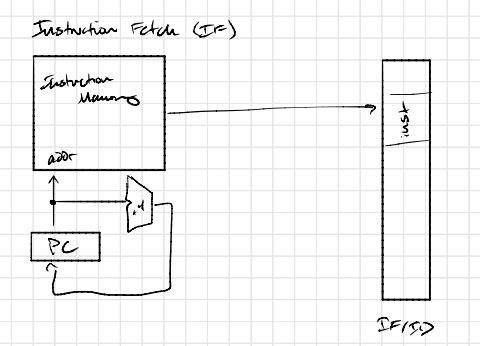 Instruction Fetch (IF)
Instruction
Memory
addr
inst
+4
PC
IF/ID